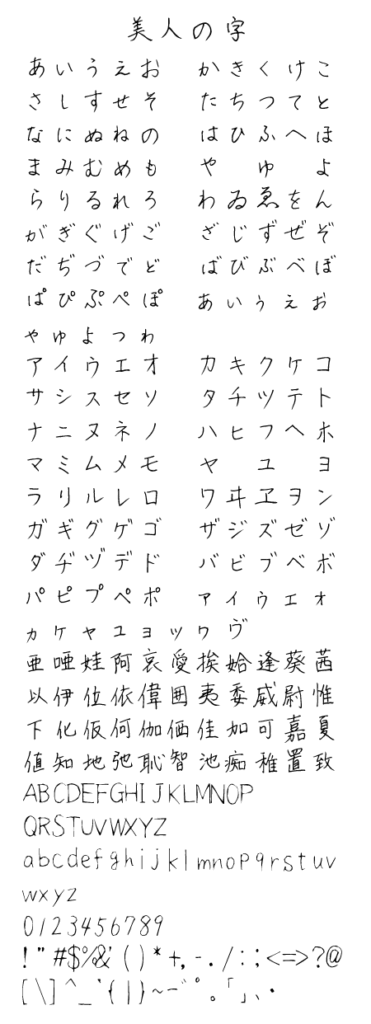 美人の字
あいうえお かきくけこ
さしすせそ たちつてと
なにぬねの はひふへほ
まみむめも やゆよ
らりるれろ わゐゑをん
がぎぐげご ざじずぜぞ
だぢづでど ばびぶべぼ
ぱぴぷぺぽ ぁぃぅぇぉ
ゃゅょっゎ
アイウエオ カキクケコ
サシスセソ タチツテト
ナニヌネノ ハヒフヘホ
マミムメモ ヤユヨ
ラリルレロ ワヰヱヲン
ガギグゲゴ ザジズゼゾ
ダヂヅデド バビブベボ
パピプペポ ァィゥェォ
ヵヶャュョッヮヴ
亜唖娃阿哀愛挨姶逢葵茜
以伊位依偉囲夷委威尉惟
下化仮何伽価佳加可嘉夏
値知地弛恥智池痴稚置致
ABCDEFGHIJKLMNOP
QRSTUVWXYZ
abcdefghijklmnopqrstuv
wxyz
0123456789
!"#$%&'()*+,-./:;<=>?@
[\]^_`{|}~-゛゜。「」、・